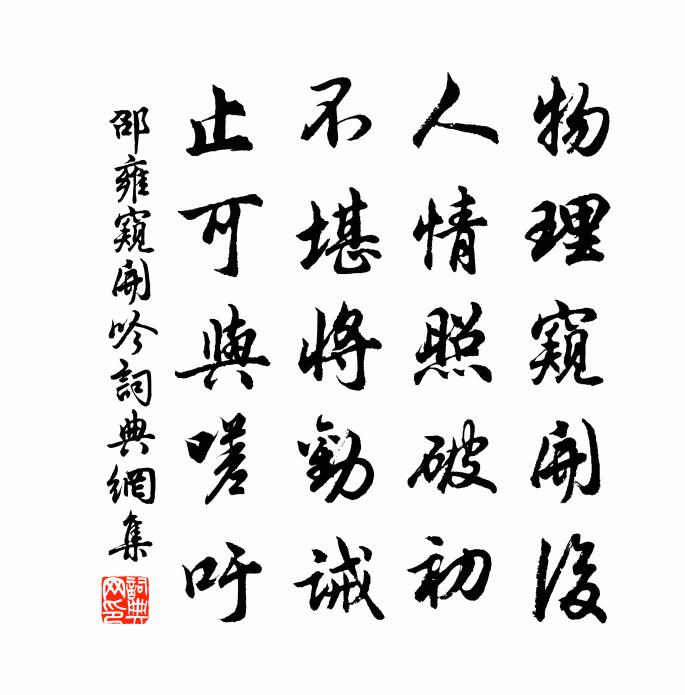 物理窺開後
人情照破初
不堪將勸誡
止可與嗟吁
邵雍窺開吟詞典網集
詞典網印